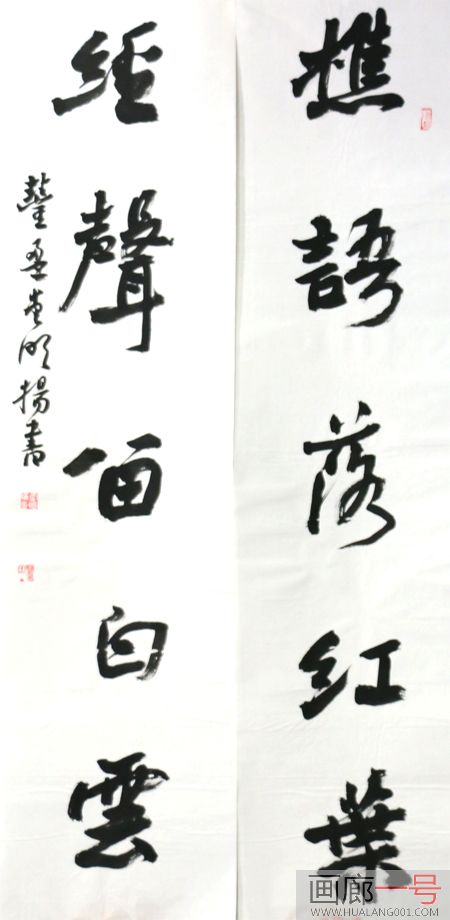 樵語落紅葉
經聲留白雲
明揚書
画廊一号
WWW.HUALANG001.COM